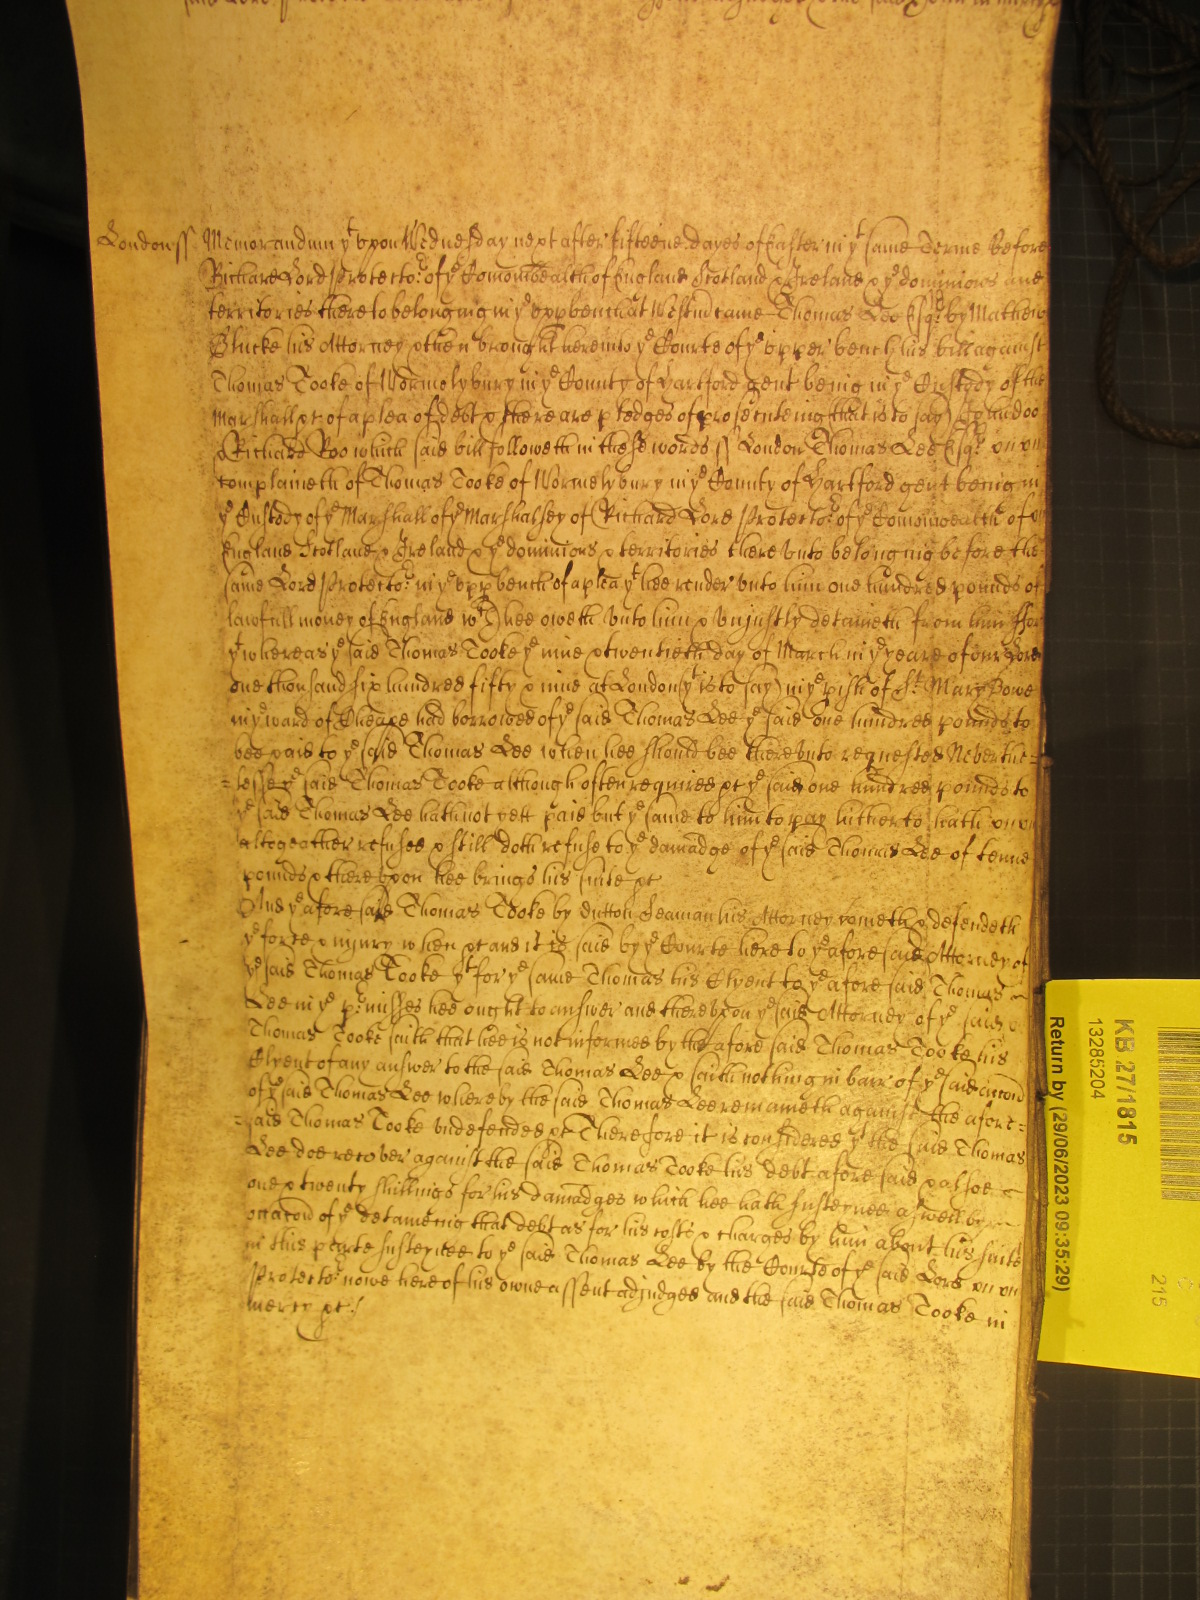 London ss Memorandum yt vpon Wednesday next after fifteene dayes of Easter in ye same Terme Before
Richard Lord Protector of ye Comonwealth of England Scotland & Ireland & ye dominions and
territories thereto belonging in ye vpp bench at Westmr came Thomas Lee Esqr by Mathew
Blucke his Attorney & then brought here into ye Courte of ye vpper bench his bill against
Thomas Tooke of Wormelybury in ye County of Hartford gent being in ye Custody of the
Marshall &c of a plea of debt & there are pledges of prosecuteing that is to say John doo
& Richard Roo which said bill followeth in these words ss London Thomas Lee Esqr
complaineth of Thomas Tooke of Wormelybury in ye County of Hartford gent being in
ye Custody of ye Marshall of ye Marshalsey of Richard Lord Protector of ye Comonwealth of
England Scotland & Ireland & ye dominions & territories there vnto belonging before the
same Lord Protector in ye vpp bench of a plea yt hee render vnto him one hundred pounds of
lawfull money of England wch hee oweth vnto him & vnjustly detaineth from him For
yt whereas ye said Thomas Tooke ye nine & twentieth day of March in ye yeare of our Lord
one thousand six hundred fifty & nine at London (yt is to say) in ye pish of St Mary Bowe
in ye ward of Cheape had borrowed of ye said Thomas Lee ye said one hundred pounds to
bee paid to ye said Thomas Lee when hee should bee therevnto requested Neverthe=
=lesse ye said Thomas Tooke although often required &c ye said one hundred pounds to
ye said Thomas Lee hath not yett paid but ye same to him to pay hitherto hath
altogeather refused & still doth refuse to ye damadge of ye said Thomas Lee of tenne
pounds & therevpon hee brings his suite &c
And ye aforesaid Thomas Tooke by dutton Seaman his Attorney cometh & defendeth
ye force & injury when &c and it is said by ye Courte here to ye aforesaid Attorney of
ye said Thomas Tooke yt for ye same Thomas his Clyent to ye aforesaid Thomas
Lee in ye pmisses hee ought to answer and therevpon ye said Attorney of ye said
Thomas Tooke saith that hee is not informed by the aforesaid Thomas Tooke his
Clyent of any answer to the said Thomas Lee & saith nothing in barr of ye said accon
of ye said Thomas Lee whereby the said Thomas Lee remaineth against the afore=
=said Thomas Tooke vndefended &c Therefore it is considered yt the said Thomas
Lee doe recover against the said Thomas Tooke his debt aforesaid & alsoe
one & twenty shillings for his damadges which hee hath susteyned aswell by
occacon of ye deteineing that debt as for his costs & charges by him about his suite
in this pte susteyned to ye said Thomas Lee by the Courte of ye said Lord
Protector nowe here of his owne assent adjudged and the said Thomas Tooke in
mercy &c
KB 27/1815
13285204
Return by (29/06/2023 09:35:29)
215